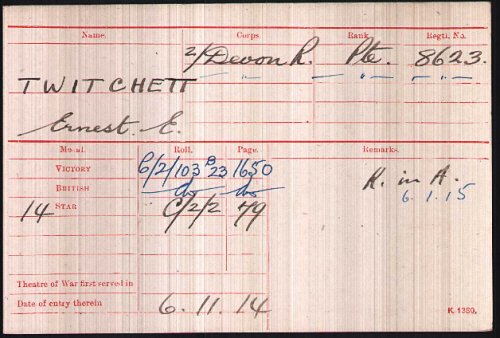 Name. Corps. Rank. Regtl. No.
2/Devon R. Pte. 8623.
— " — — " — — " —
TWITCHETT
Ernest. E.
Medal. Roll. Page. Remarks.
VICTORY C/2/103 B23 1650
BRITISH do do
14 STAR C/2/2 79
K. in A.
6.1.15
Theatre of War first served in
Date of entry therein 6.11.14
K. 1380.